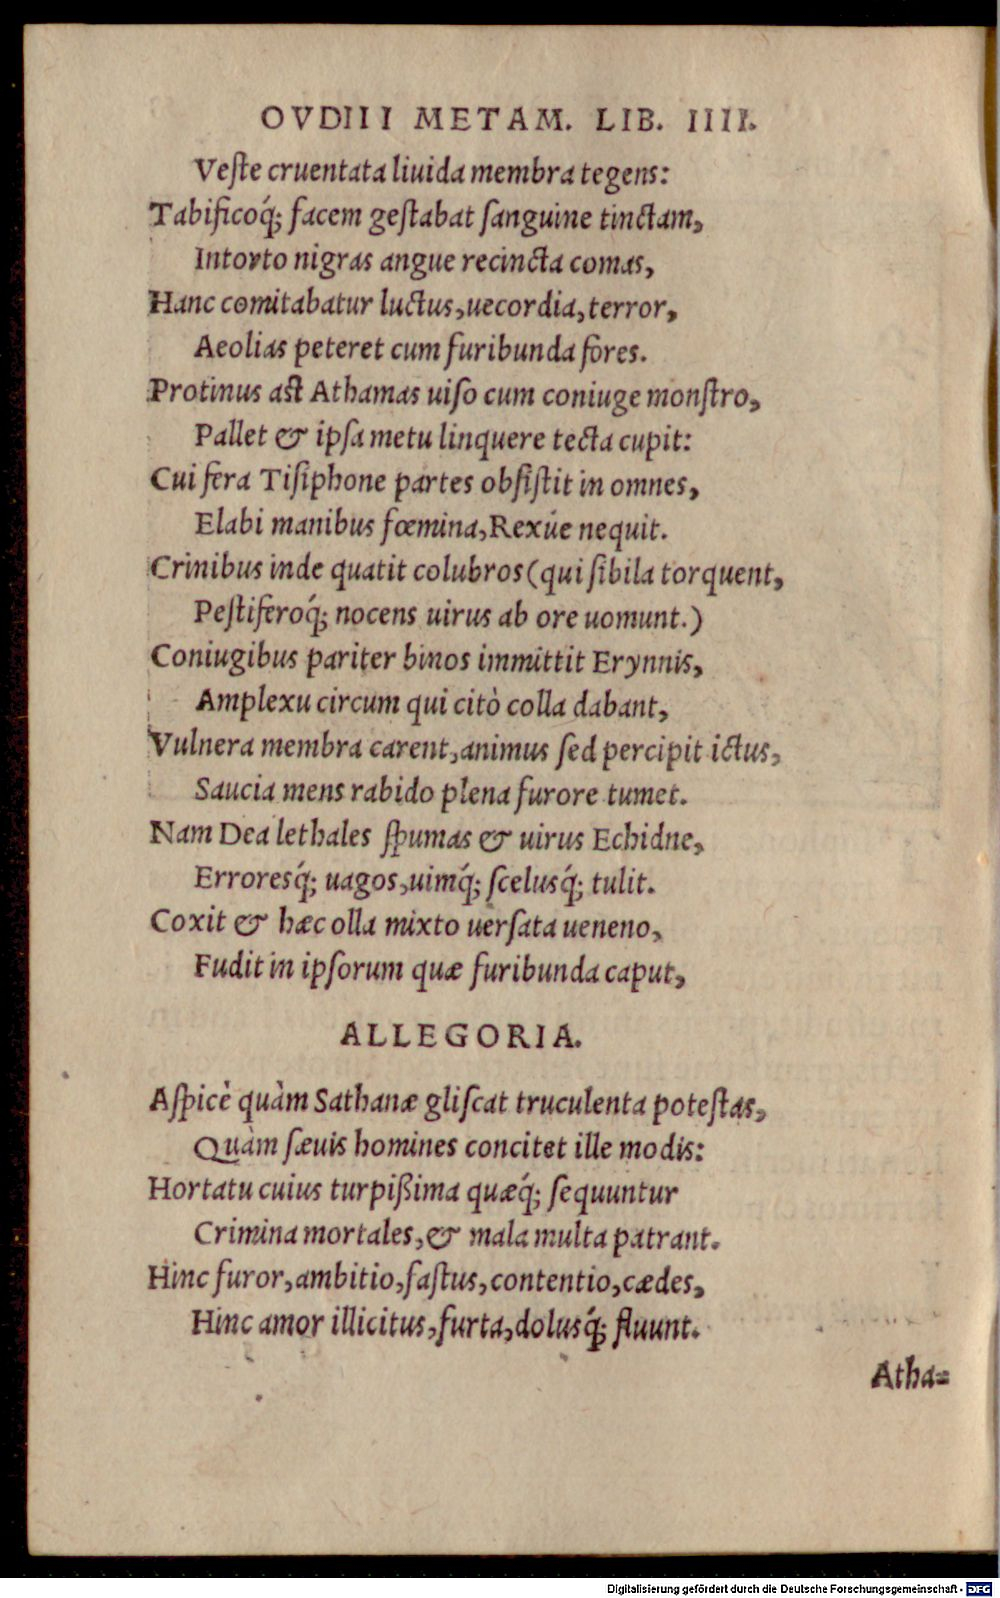 OVDIII METAM. LIB. IIII.
Veſte cruentata liuida membra tegens:
Tabificoq́; facem geſtabat ſanguine tinctam,
Intorto nigras angue recincta comas,
Hanc comitabatur luctus, uecordia, terror,
Aeolias peteret cum furibunda fores.
Protinus aſt Athamas uiſo cum coniuge monſtro,
Pallet & ipſa metu linquere tecta cupit:
Cui fera Tiſiphone partes obſiſtit in omnes,
Elabi manibus fœmina, Rexúe nequit.
Crinibus inde quatit colubros (qui ſibila torquent,
Peſtiferoq́; nocens uirus ab ore uomunt.)
Coniugibus pariter binos immittit Erynnis,
Amplexu circum qui citò colla dabant,
Vulnera membra carent, animus ſed percipit ictus,
Saucia mens rabido plena furore tumet.
Nam Dea lethales ſpumas & uirus Echidne,
Erroresq́; uagos, uimq́; ſcelusq́; tulit.
Coxit & hæc olla mixto uerſata ueneno,
Fudit in ipſorum quæ furibunda caput,
ALLEGORIA.
Aſpicè quàm Sathanæ gliſcat truculenta poteſtas,
Quàm ſæuis homines concitet ille modis:
Hortatu cuius turpißima quæq́; ſequuntur
Crimina mortales, & mala multa patrant.
Hinc furor, ambitio, faſtus, contentio, cædes,
Hinc amor illicitus, furta, dolusq́; fluunt.
Atha=
Digitalisierung gefördert durch die Deutsche Forschungsgemeinschaft - DFG